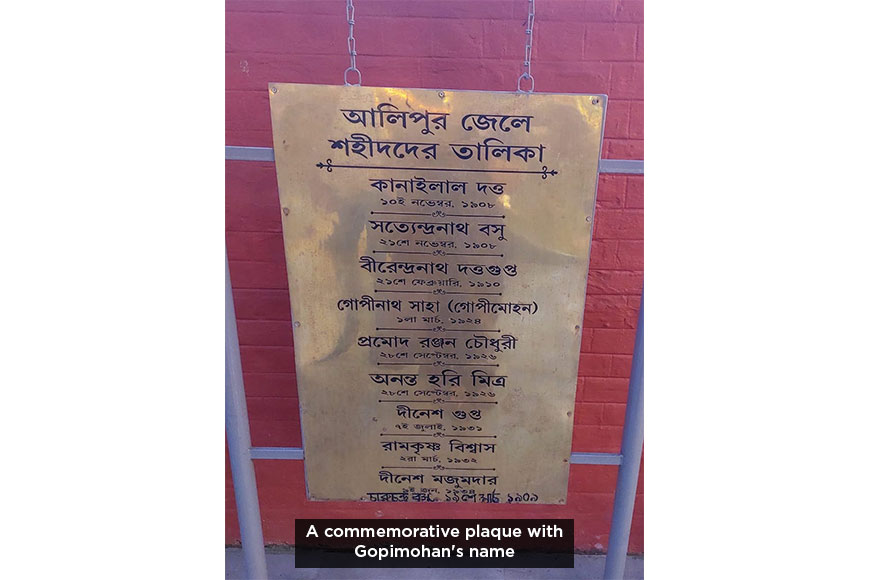 আলিপুর জেলে
শহীদদের তালিকা
কানাইলাল দত্ত
১০ই নভেম্বর, ১৯০৮
সত্যেন্দ্রনাথ বসু
২১শে নভেম্বর, ১৯০৮
বীরেন্দ্রনাথ দত্তগুপ্ত
২১শে ফেব্রুয়ারি, ১৯১০
গোপীনাথ সাহা (গোপীমোহন)
১লা মার্চ, ১৯২৪
প্রমোদ রঞ্জন চৌধুরী
২৮শে সেপ্টেম্বর, ১৯২৬
অনন্ত হরি মিত্র
২৮শে সেপ্টেম্বর, ১৯২৬
দীনেশ গুপ্ত
৭ই জুলাই, ১৯৩১
রামকৃষ্ণ বিশ্বাস
২রা মার্চ, ১৯৩২
দীনেশ মজুমদার
৯ই জুন, ১৯৩৪
১৯শে মার্চ ১৯০৯
A commemorative plaque with
Gopimohan's name